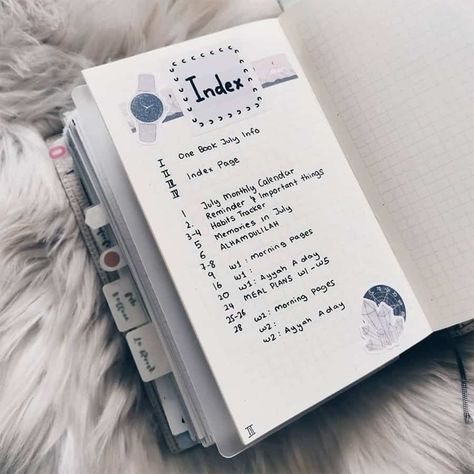 Index
I One Book July Info
II
III Index Page
1 July Monthly Calendar
2. Reminder & Important things
3-4 Habits Tracker
5 Memories in July
6 ALHAMDULILAH
7-8 w1: morning pages
9 w1:
16 w1: Ayyah A day
20 MEAL PLANS w1-w5
24 w2: morning pages
25-26 w2:
28 w2: Ayyah A day
III